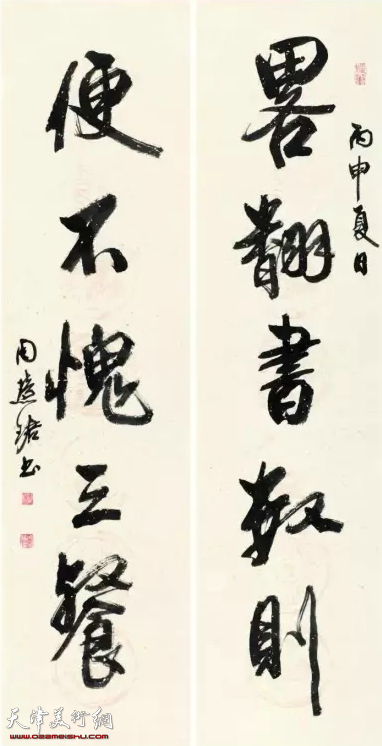 丙申夏日
畧翻書數則
便不愧三餐
周慧珺书
天津美術網
www.022meishu.com